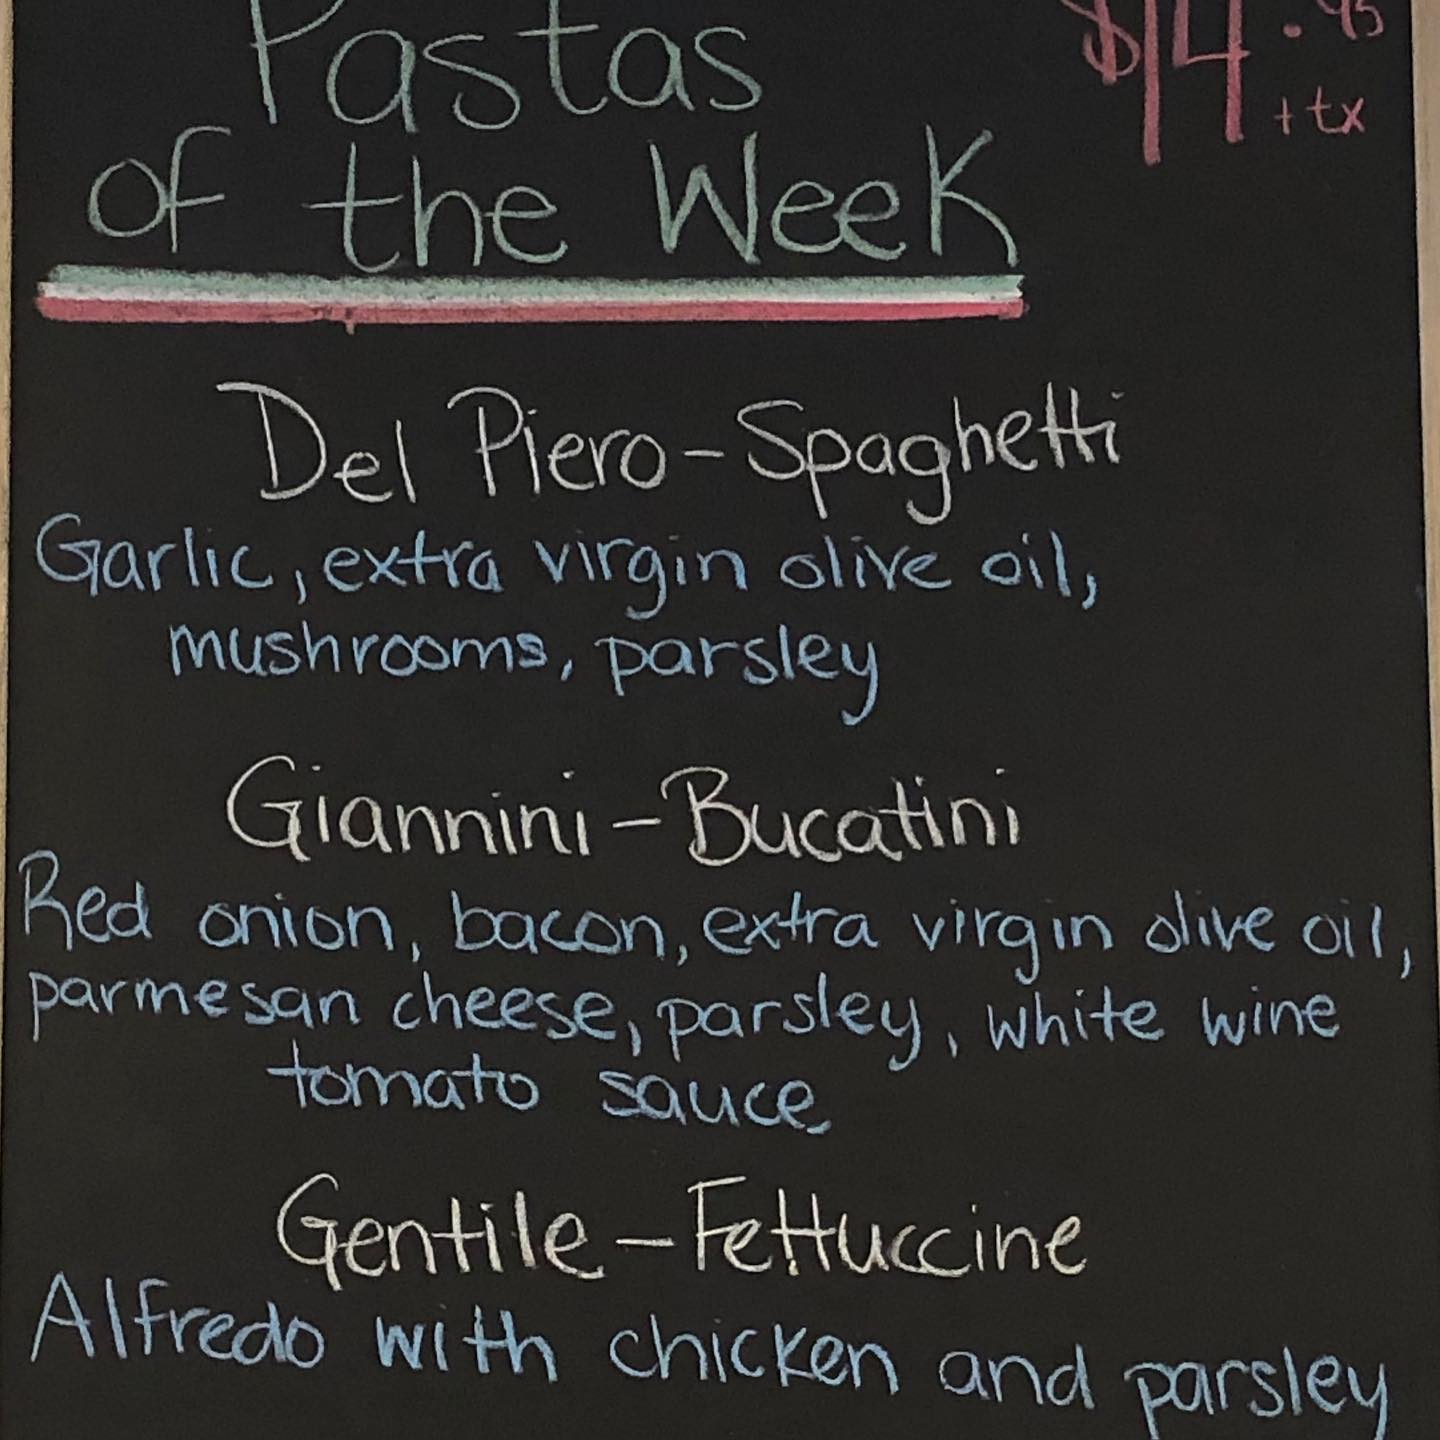 Pastas
$14.95
+tx
of the Week
Del Piero-Spaghetti
Garlic, extra virgin olive oil,
mushrooms, parsley
Giannini-Bucatini
Red onion, bacon, extra virgin olive oil,
parmesan cheese, parsley, white wine
tomato sauce
Gentile-Fettuccine
Alfredo with chicken and parsley